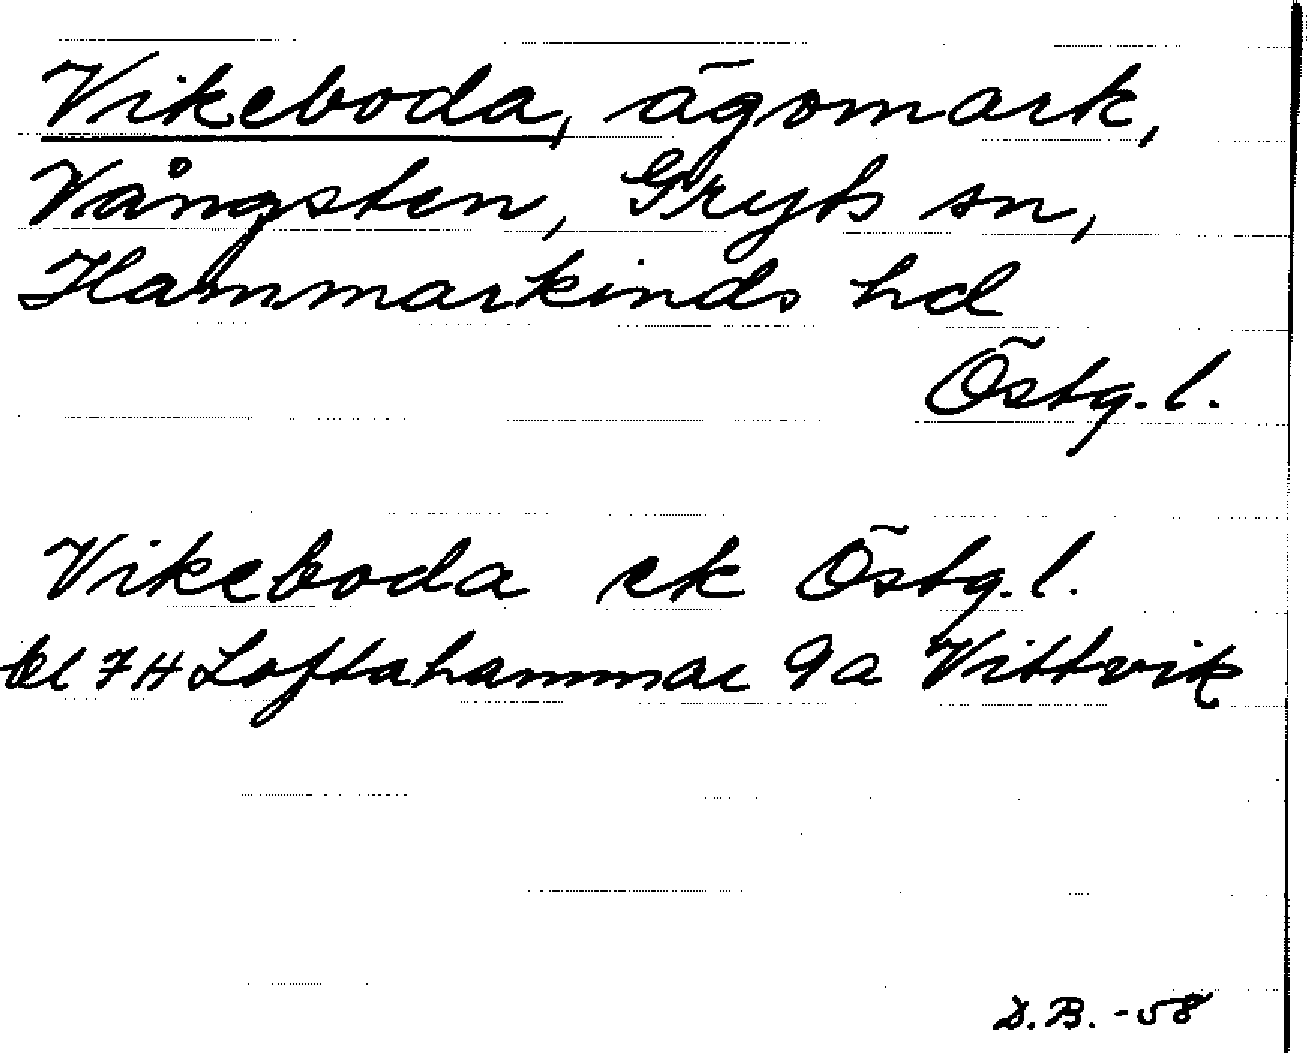 Vikeboda, ägomark,
Vångsten, Gryts sn,
Hammarkinds hd
Östg. l.
Vikeboda ek Östg. l.
bl 7 H Loftahammar 9a Vittvik
D.B. -58